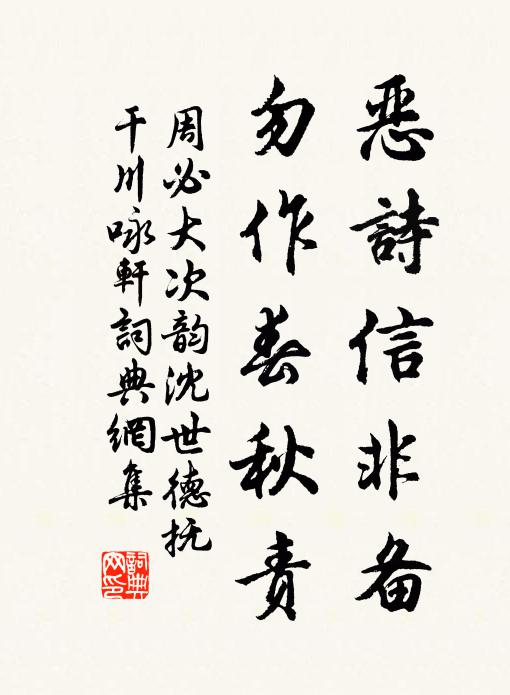 恶詩信非备
勿作春秋责
周必大次韵沈世德抚
干川咏軒詞典網集
詞典网印